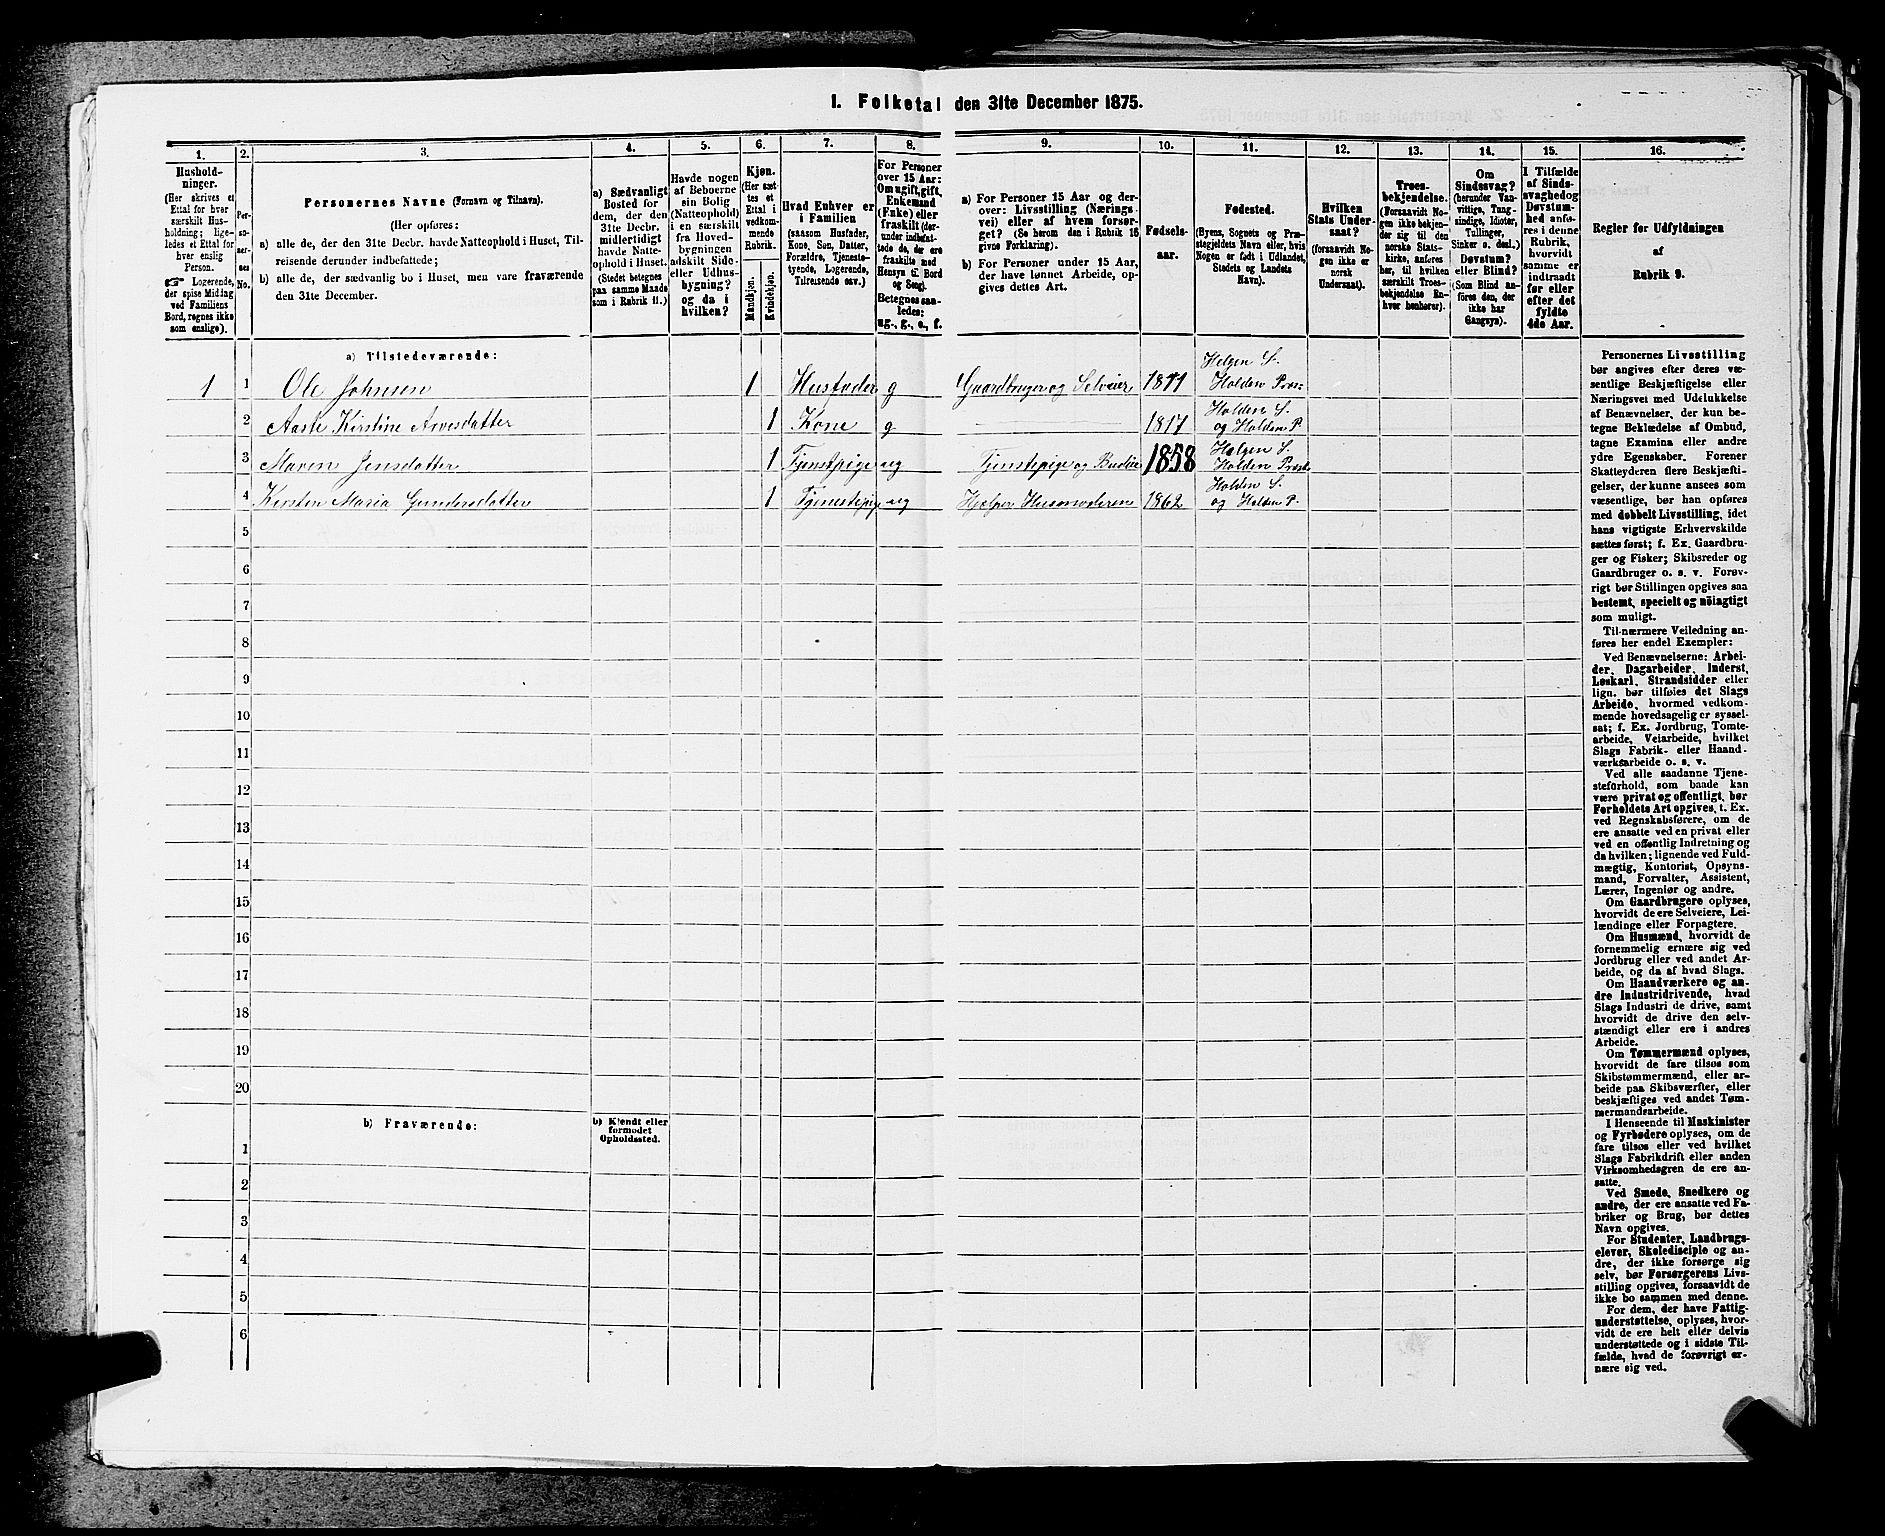 I. Folketal den 31te December 1875.
1.
Hushold-
ninger.
(Her skrives et
Ettal for hver
særskilt Hus-
holdning; lige-
ledes et Ettal for
hver enslig
Person.
☞ Logerende,
der spise Middag
ved Familiens
Bord, regnes ikke
som enslige).
2.
Per-
so-
ner-
nes
No.
3.
Personernes Navne (Fornavn og Tilnavn).
(Her opføres:
a) alle de, der den 31te Decbr. havde Natteophold i Huset, Til-
reisende derunder indbefattede;
b) alle de, der sædvanlig bo i Huset, men vare fraværende
den 31te December.
4.
a) Sædvanligt
Bosted for
dem, der den
31te Decbr.
midlertidigt
havde Natte-
ophold i Huset.
(Stedet betegnes
paa samme Maade
som i Rubrik 11.)
5.
Havde nogen
af Beboerne
sin Bolig
(Natteophold)
i en særskilt
fra Hoved-
bygningen
adskilt Side-
eller Udhus-
bygning?
og da i
hvilken?
6.
Kjøn.
(Her sæt-
tes et
Ettal i
vedkom-
mende
Rubrik.
Mandkjøn.
Kvindekjøn.
7.
Hvad Enhver er
i Familien
(saasom Husfader,
Kone, Søn, Datter,
Forældre, Tjeneste-
tyende, Logerende,
Tilreisende osv.)
8.
For Personer
over 15 Aar:
Om ugift, gift,
Enkemand
(Enke) eller
fraskilt (der-
under indbefat-
tede de, der ere
fraskilte med
Hensyn til Bord
og Seng).
Betegnes saa-
ledes:
ug., g., e., f.
9.
a) For Personer 15 Aar og der-
over: Livsstilling (Nærings-
vei) eller af hvem forsør-
get? (Se herom den i Rubrik 16
givne Forklaring).
b) For Personer under 15 Aar,
der have lønnet Arbeide, op-
gives dettes Art.
10.
Fødsels-
aar.
11.
Fødested.
(Byens, Sognets og Præ-
stegjeldets Navn eller, hvis
Nogen er født i Udlandet,
Stedets og Landets
Navn).
12.
Hvilken
Stats Under-
saat?
(forsaavidt No-
gen ikke er
norsk
Undersaat).
13.
Troes-
bekjendelse.
(Forsaavidt No-
gen ikke bekjen-
der sig til den
norske Stats-
kirke, anføres
her, til hvilken
særskilt Troes-
bekjendelse En-
hver henhører).
14.
Om
Sindssvag?
(herunder Van-
vittige, Tung-
sindige, Idioter,
Tullinger,
Sinker o. desl.)
Døvstum?
eller Blind?
(Som Blind an-
føres den, der
ikke har
Gangsyn).
15.
I Tilfælde
af Sinds-
svaghed og
Døvstum-
hed anfø-
res i denne
Rubrik,
hvorvidt
samme er
indtraadt
før eller
efter det
fyldte
4de Aar.
16.
Regler for Udfyldningen
af
Rubrik 9.
a) Tilstedeværende:
1 1 Ole Johnsen 1 Husfader g Gaardbruger og Selveier 1811 Helgen S. Holden Præs:
2 Aaste Kirstine Arvesdatter 1 Kone g 1817 Holden S. og Holden P.
3 Maren Jensdatter 1 Tjenstpige ug Tjenstepige og Budeie 1858 Helgen S. Holden Præst
4 Kirsten Maria Gundersdatter 1 Tjenestepige ug Hjelper Husmoderen 1862 Holden S. og Holden P.
5
6
7
8
9
10
11
12
13
14
15
16
17
18
19
20
b) Fraværende:
b) Kjendt eller
formodet
Opholdssted.
1
2
3
4
5
6
Personernes Livsstilling
bør angives efter deres væ-
sentlige Beskjæftigelse eller
Næringsvei med Udelukkelse
af Benævnelser, der kun be-
tegne Beklædelse af Ombud,
tagne Examina eller andre
ydre Egenskaber. Forener
Skatteyderen flere Beskjæfti-
gelser, der kunne ansees som
væsentlige, bør han opføres
med dobbelt Livsstilling, idet
hans vigtigste Erhvervskilde
sættes først; f. Ex. Gaardbru-
ger og Fisker; Skibsreder og
Gaardbruger o. s. v. Forøv-
rigt bør Stillingen opgives saa
bestemt, specielt og nöiagtigt
som muligt.
Til nærmere Veiledning an-
føres her endel Exempler:
Ved Benævnelserne: Arbei-
der, Dagarbeider, Inderst,
Løskarl, Strandsidder eller
lign. bør tilføies det Slags
Arbeide, hvormed vedkom-
mende hovedsagelig er syssel-
sat; f. Ex. Jordbrug, Tomte-
arbeide, Veiarbeide, hvilket
Slags Fabrik- eller Haand-
værksarbeide o. s. v.
Ved alle saadanne Tjene-
steforhold, som baade kan
være privat og offentligt, bør
Forholdets Art opgives, t. Ex.
ved Regnskabsførere, om de
ere ansatte ved en privat eller
ved en offentlig Indretning og
da hvilken; lignende ved Fuld-
mægtig, Kontorist, Opsyns-
mand, Forvalter, Assistent,
Lærer, Ingeniør og andre.
Om Gaardbrugere oplyses,
hvorvidt de ere Selveiere, Lei-
lændinge eller Forpagtere.
Om Husmænd, hvorvidt de
fornemmelig ernære sig ved
Jordbrug eller ved andet Ar-
beide, og da af hvad Slags.
Om Haandværkere og an-
dre Industridrivende, hvad
Slags Industri de drive, samt
hvorvidt de drive den selv-
stændigt eller ere i andres
Arbeide.
Om Tømmermænd oplyses,
hvorvidt de fare tilsøs som
Skibstømmermænd, eller ar-
beide paa Skibsværfter, eller
beskjæftiges ved andet Tøm-
mermandsarbeide.
I Henseende til Maskinister
og Fyrbødere oplyses, om de
fare tilsøs eller ved hvilket
Slags Fabrikdrift eller anden
Virksomhedsgren de ere an-
satte.
Ved Smede, Snedkere og
andre, der ere ansatte ved Fa-
briker og Brug, bør dettes
Navn opgives.
For Studenter, Landbrugs-
elever, Skoledisciple og an-
dre, der ikke forsørge sig
selv, bør Forsørgerens Livs-
stilling opgives, forsaavidt de
ikke bo sammen med denne.
For dem, der have Fattig-
understøttelse, oplyses, hvor-
vidt de ere helt eller delvis
understøttede og i sidste Til-
fælde, hvad de forøvrigt er-
nære sig ved.